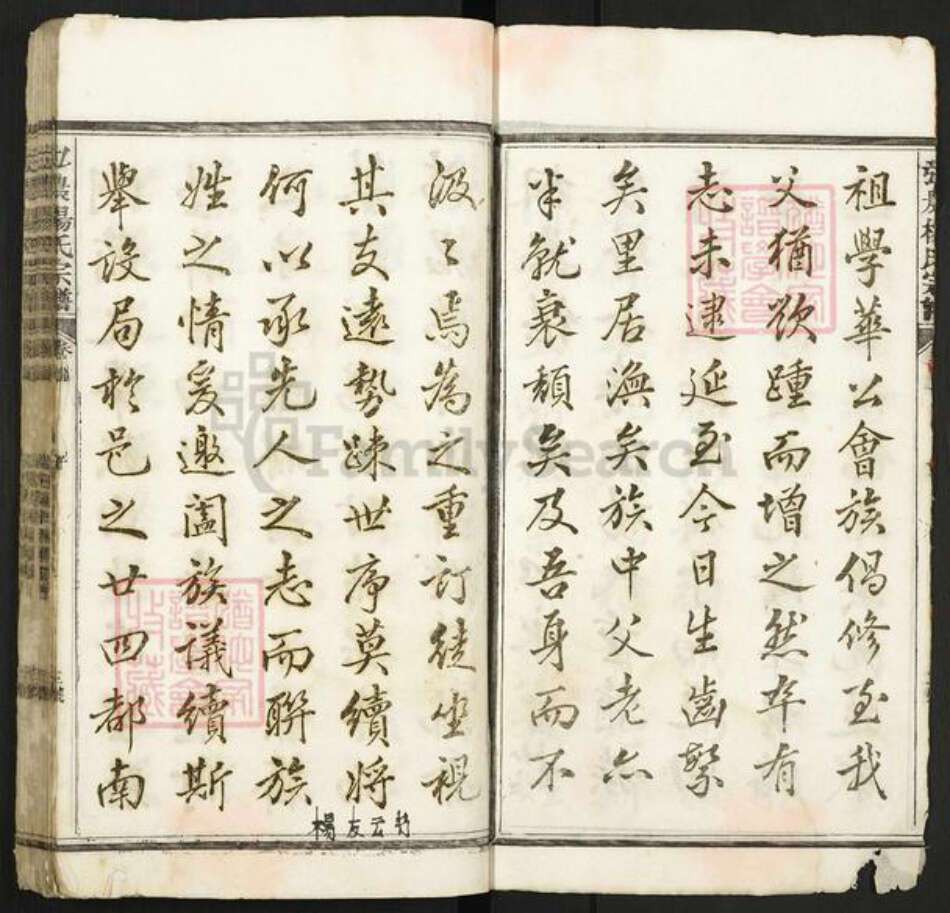 祖學華公會族倡修至我
父猶欲踵而增之然卒有
志未逮延至今日生齒繁
矣里居渙矣族中父老亦
半就衰頹矣及吾身而不
汲汲焉為之重訂徒坐視
其支遠勢疎世序莫續將
何以承先人之志而聯族
姓之情爰邀闔族議續斯
舉設局於邑之廿四都南
楊氏宗譜
FamilySearch